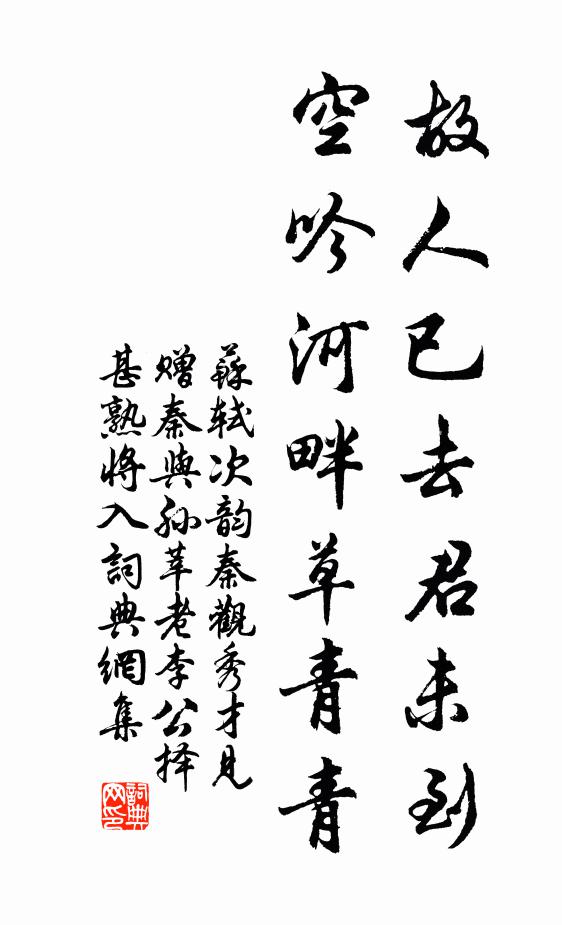 故人已去君未到
空吟河畔草青青
蘇轼次韵秦觀秀才見
赠秦與孙莘老李公择
甚熟将入詞典網集
詞典网印